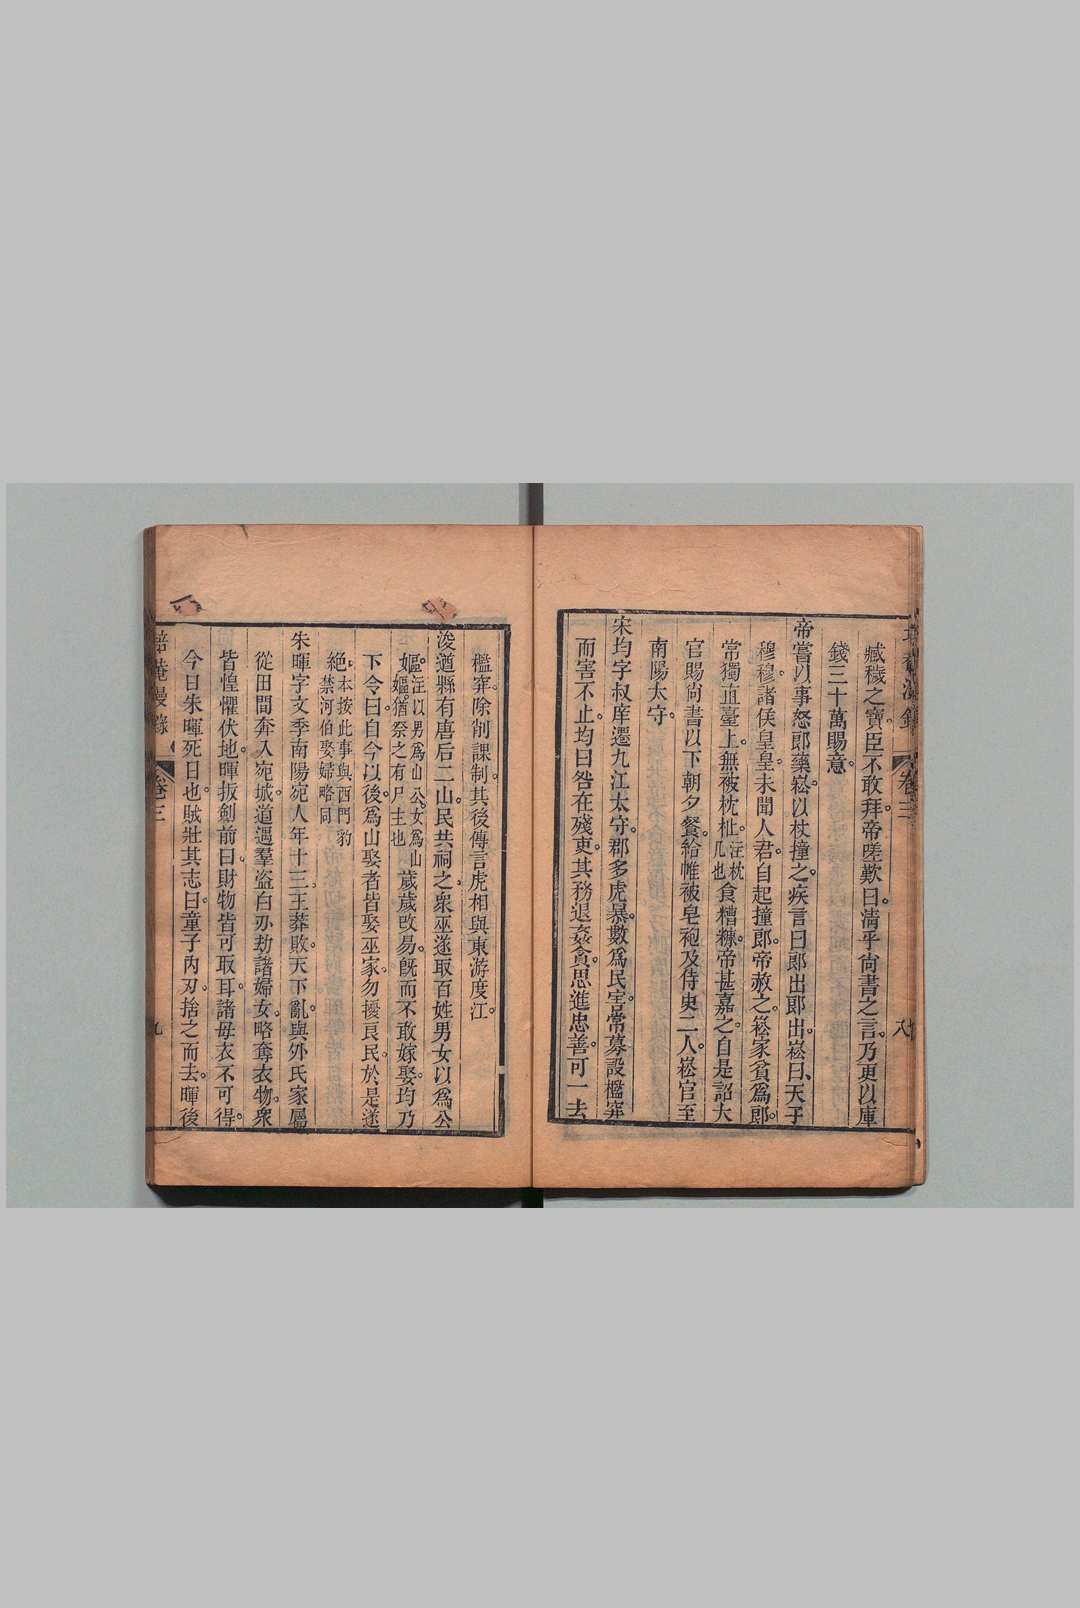 臧穢之寶臣不敢拜帝嗟歎曰清乎尚書之言乃更以庫
錢三十萬賜意
帝嘗以事怒郎藥崧以杖撞之疾言曰郎出郎出崧曰天子
穆穆諸侯皇皇未聞人君自起撞郎帝赦之崧家貧爲郎
常獨直臺上無被枕杫注枕几也食糟糠帝甚嘉之自是詔大
官賜尚書以下朝夕餐給帷被皂袍及侍史二人崧官至
南陽太守
宋均字叔庠遷九江太守郡多虎暴數爲民害常募設檻穽
而害不止均曰咎在殘吏其務退姦貪思進忠善可一去
檻穽除削課制其後傳言虎相與東游度江
浚遒縣有唐后二山民共祠之衆巫遂取百姓男女以爲公
嫗注以男爲山公女爲山嫗猶祭之有尸主也歲歲改易旣而不敢嫁娶均乃
下令曰自今以後爲山娶者皆娶巫家勿擾良民於是遂
絶本按此事與西門豹禁河伯娶婦略同
朱暉字文季南陽宛人年十三王莽敗天下亂與外氏家屬
從田間奔入宛城道遇羣盜白刃劫諸婦女略奪衣物衆
皆惶懼伏地暉拔劍前曰財物皆可取耳諸母衣不可得
今日朱暉死日也賊壯其志曰童子內刃捨之而去暉後
卷三
九